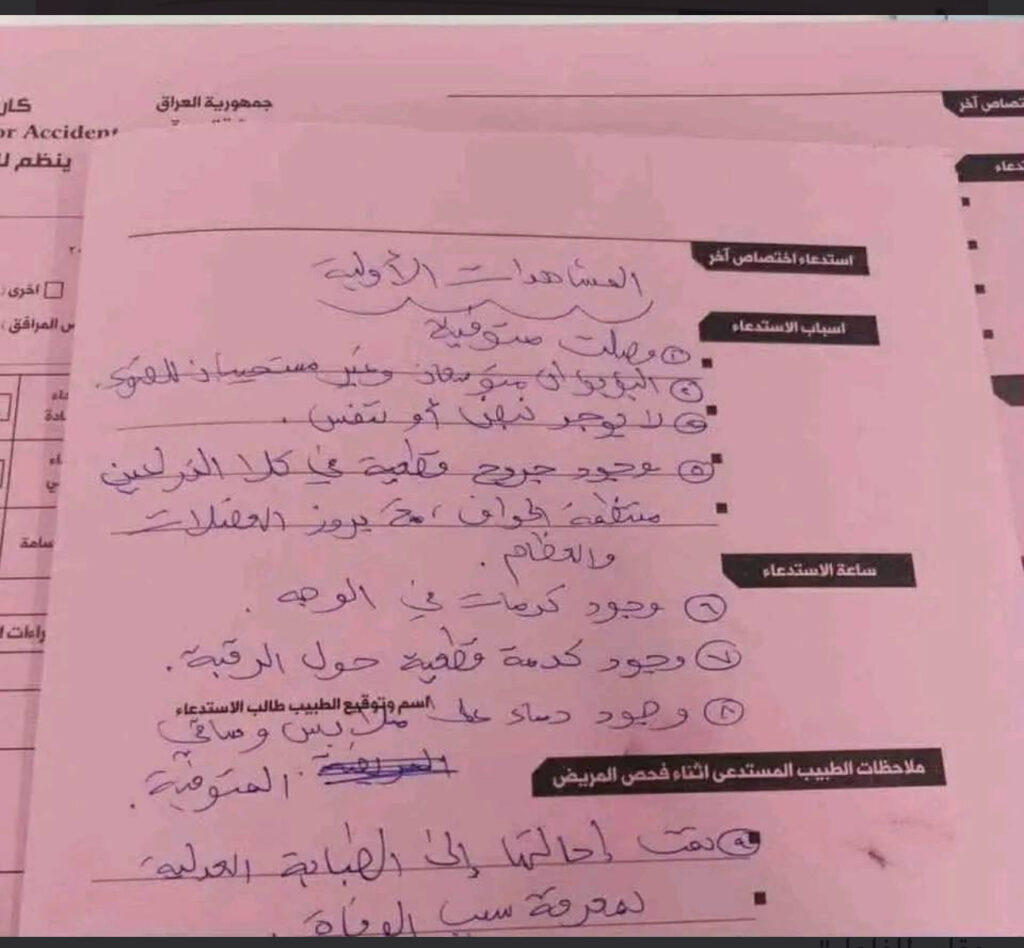 كار
جمهورية العراق
or Accident
ينظم لل
تصاص آخر
دعاء
اخرى
س المرافق
استدعاء اختصاص آخر
المشاهدات الأولية
اسباب الاستدعاء
وصلت متوفية
البؤبؤان متوسعان وغير مستجيبان للضوء.
لا يوجد نبض أو تنفس.
٥ وجود جروح قطعية في كلا الذراعين
منتظمة الحواف، مع بروز العضلات
والعظام.
ساعة الاستدعاء
٦ وجود كدمات في الوجه.
٧ وجود كدمة قطعية حول الرقبة.
اسم وتوقيع الطبيب طالب الاستدعاء
٨ وجود دماء على ملابس وساقي
المريضة المتوفية.
ملاحظات الطبيب المستدعى اثناء فحص المريض
٩ تمت إحالتها إلى الطبابة العدلية
لمعرفة سبب الوفاة.